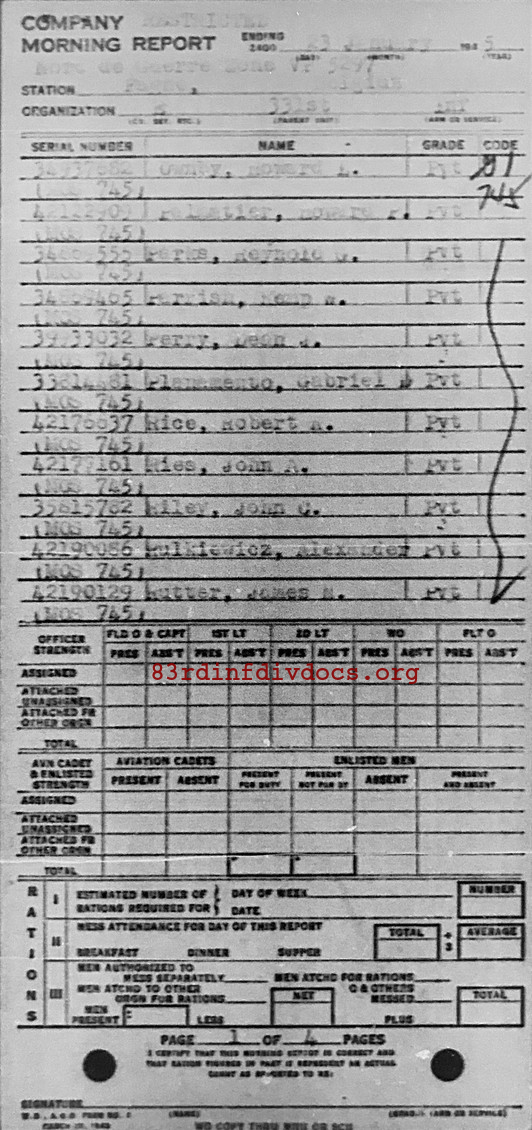 COMPANY RESTRICTED
MORNING REPORT ENDING 2400 23 January 1945
(DAY) (MONTH) (YEAR)
de Guerre Zone VP 5297
STATION
ORGANIZATION 331st Inf
(CO. DET. ETC.) (PARENT UNIT) (ARM OR SERVICE)
SERIAL NUMBER NAME GRADE CODE
34937882 Ownby, Howard L. Pvt 81
(MOS 745) 745
42122909 Palmatier, Howard F. Pvt
(MOS 745)
34669555 Parks, Reynold G. Pvt
(MOS 745)
34869465 Parrish, Kemp W. Pvt
(MOS 745)
39733032 Perry, Dean J. Pvt
(MOS 745)
33814481 Planamento, Gabriel Pvt
(MOS 745)
42176837 Rice, Robert R. Pvt
(MOS 745)
42177161 Ries, John A. Pvt
(MOS 745)
35815782 Riley, John C. Pvt
(MOS 745)
42190086 Rulkiewicz, Alexander Pvt
(MOS 745)
42190129 Rutter, James M. Pvt
(MOS 745)
OFFICER STRENGTH FLD O & CAPT 1ST LT 2D LT WO FLT O
PRES ABS'T PRES ABS'T PRES ABS'T PRES ABS'T PRES ABS'T
ASSIGNED
83rdinfdivdocs.org
ATTACHED UNASSIGNED
ATTACHED FR OTHER ORGN
TOTAL
AVN CADET & ENLISTED STRENGTH AVIATION CADETS ENLISTED MEN
PRESENT ABSENT PRESENT FOR DUTY PRESENT NOT FOR DY ABSENT PRESENT AND ABSENT
ASSIGNED
ATTACHED UNASSIGNED
ATTACHED FR OTHER ORGN
TOTAL
RATIONS
I ESTIMATED NUMBER OF RATIONS REQUIRED FOR DAY OF WEEK DATE NUMBER
II MESS ATTENDANCE FOR DAY OF THIS REPORT TOTAL ÷ 3 AVERAGE
BREAKFAST DINNER SUPPER
III MEN AUTHORIZED TO MESS SEPARATELY MEN ATCHD FOR RATIONS
MEN ATCHD TO OTHER ORGN FOR RATIONS NET O & OTHERS MESSED TOTAL
MEN PRESENT LESS PLUS
PAGE 1 OF 4 PAGES
I CERTIFY THAT THIS MORNING REPORT IS CORRECT AND
THAT RATION FIGURES IN PART II REPRESENT AN ACTUAL
COUNT AS REPORTED TO ME:
SIGNATURE
W.D., A.G.O. FORM NO. 1 (NAME) (GRADE) (ARM OR SERVICE)